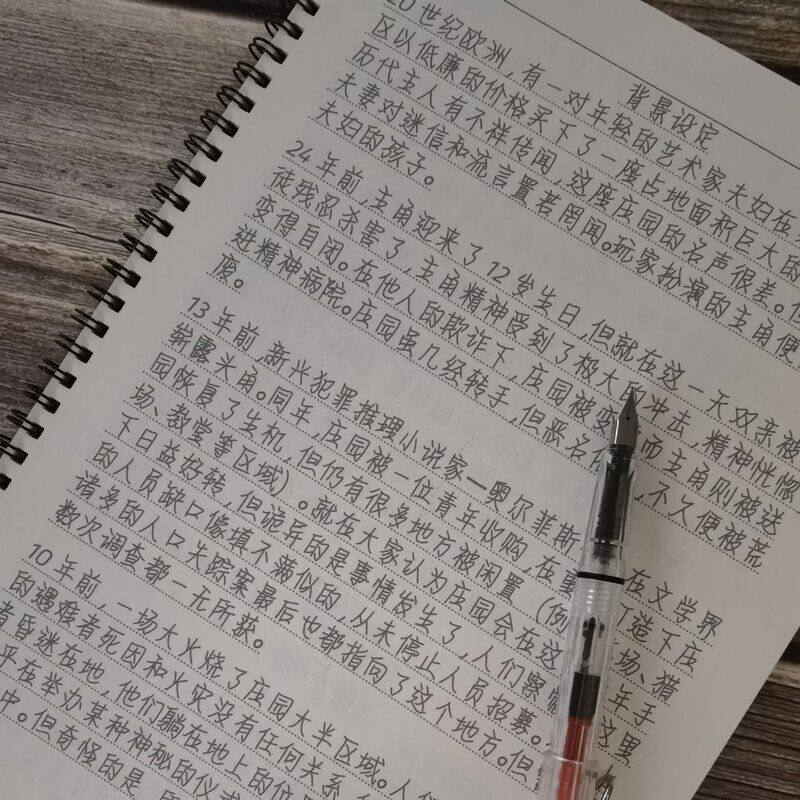 背景设定
20世纪欧洲，有一对年轻的艺术家夫妇在
区以低廉的价格买下了一座占地面积巨大的
历代主人有不祥传闻，这座庄园的名声很差。
夫妻对迷信和流言置若罔闻。玩家扮演的主角便
夫妇的孩子。
24年前，主角迎来了12岁生日，但就在这一天双亲被
徒残忍杀害了，主角精神受到了极大的冲击，精神恍惚
变得自闭。在他人的欺诈下，庄园被变 而主角则被送
进精神病院。庄园虽几经转手，但恶名 ，不久便被荒
废。
13年前，新兴犯罪推理小说家—奥尔菲斯 在文学界
崭露头角。同年，庄园被一位青年收购，在 造下庄
园恢复了生机，但仍有很多地方被闲置（例 场、猎
场、教堂等区域）。就在大家认为庄园会在这 年手
下日益好转，但诡异的是事情发生了，人们察 这里
的人员缺口像填不满似的，从未停止人员招募。
诸多的人口失踪案最后也都指向了这个地方。但
数次调查都一无所获。
10年前，一场大火烧了庄园大半区域。人们
的遇难者死因和火灾没有任何关系，
昏迷在地，他们躺在地上的位
乎在举办某种神秘的仪式
中。但奇怪的是，